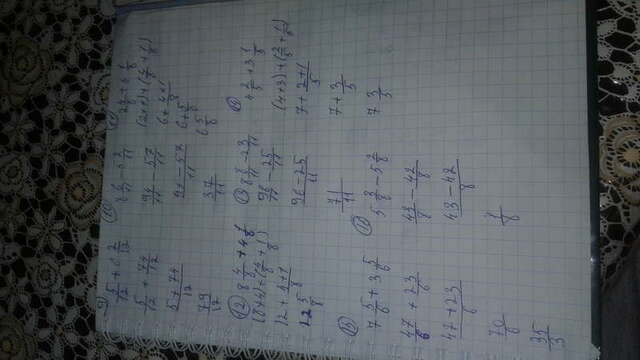 9)
5/12 + 6 2/12
5/12 + 74/12
5+74/12
79/12
10
8 6/11 - 5 2/11
94/11 - 57/11
94-57/11
37/11
11
2 4/8 + 4 1/8
(2+4)+(4/8+1/8)
6+ 4+1/8
6+5/8
6 5/8
12 8 4/8 + 4 1/8
(8+4)+(4/8+1/8)
12+ 4+1/8
12 5/8
13 8 8/11 - 2 3/11
96/11 - 25/11
96-25/11
71/11
14
4 2/5 + 3 1/5
(4+3)+(2/5+1/5)
7+ 2+1/5
7+ 3/5
7 3/5
15
7 5/6 + 3 5/6
47/6 + 23/6
47+23/6
70/6
35/3
5 3/8 - 5 2/8
43/8 - 42/8
43-42/8
1/8